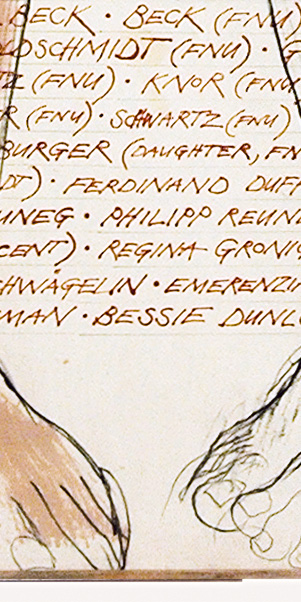 BECK · BECK (FNU)
LDSCHMIDT (FNU) ·
TZ (FNU) · KNOR (FNU
R (FNU) · SCHWARTZ (FNU)
BURGER (DAUGHTER, FN
DT) · FERDINAND DUFF
UNEG · PHILIPP REUN
CENT) · REGINA GRONIG
HWÄGELIN · EMERENZI
MAN · BESSIE DUNLO